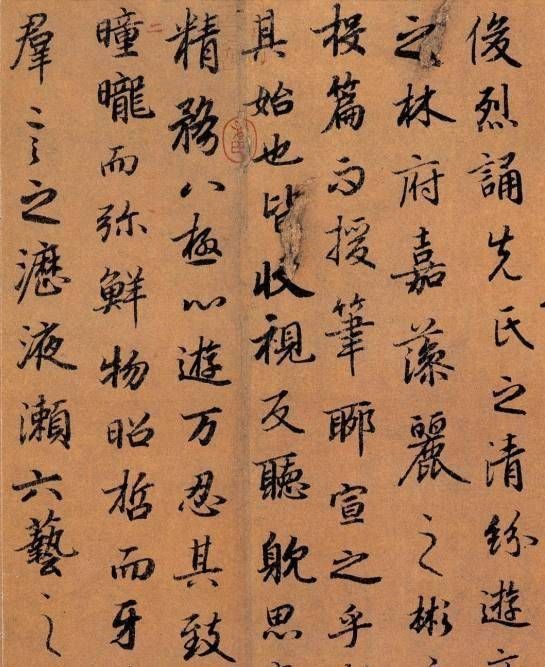 俊烈誦先氏之清紛遊
之林府嘉藻麗之彬
投篇而援筆聊宣之乎
其始也皆收視反聽躭思
精務八極心遊万忍其致
曈曨而弥鮮物昭哲而牙
羣言之瀝液瀨六藝之